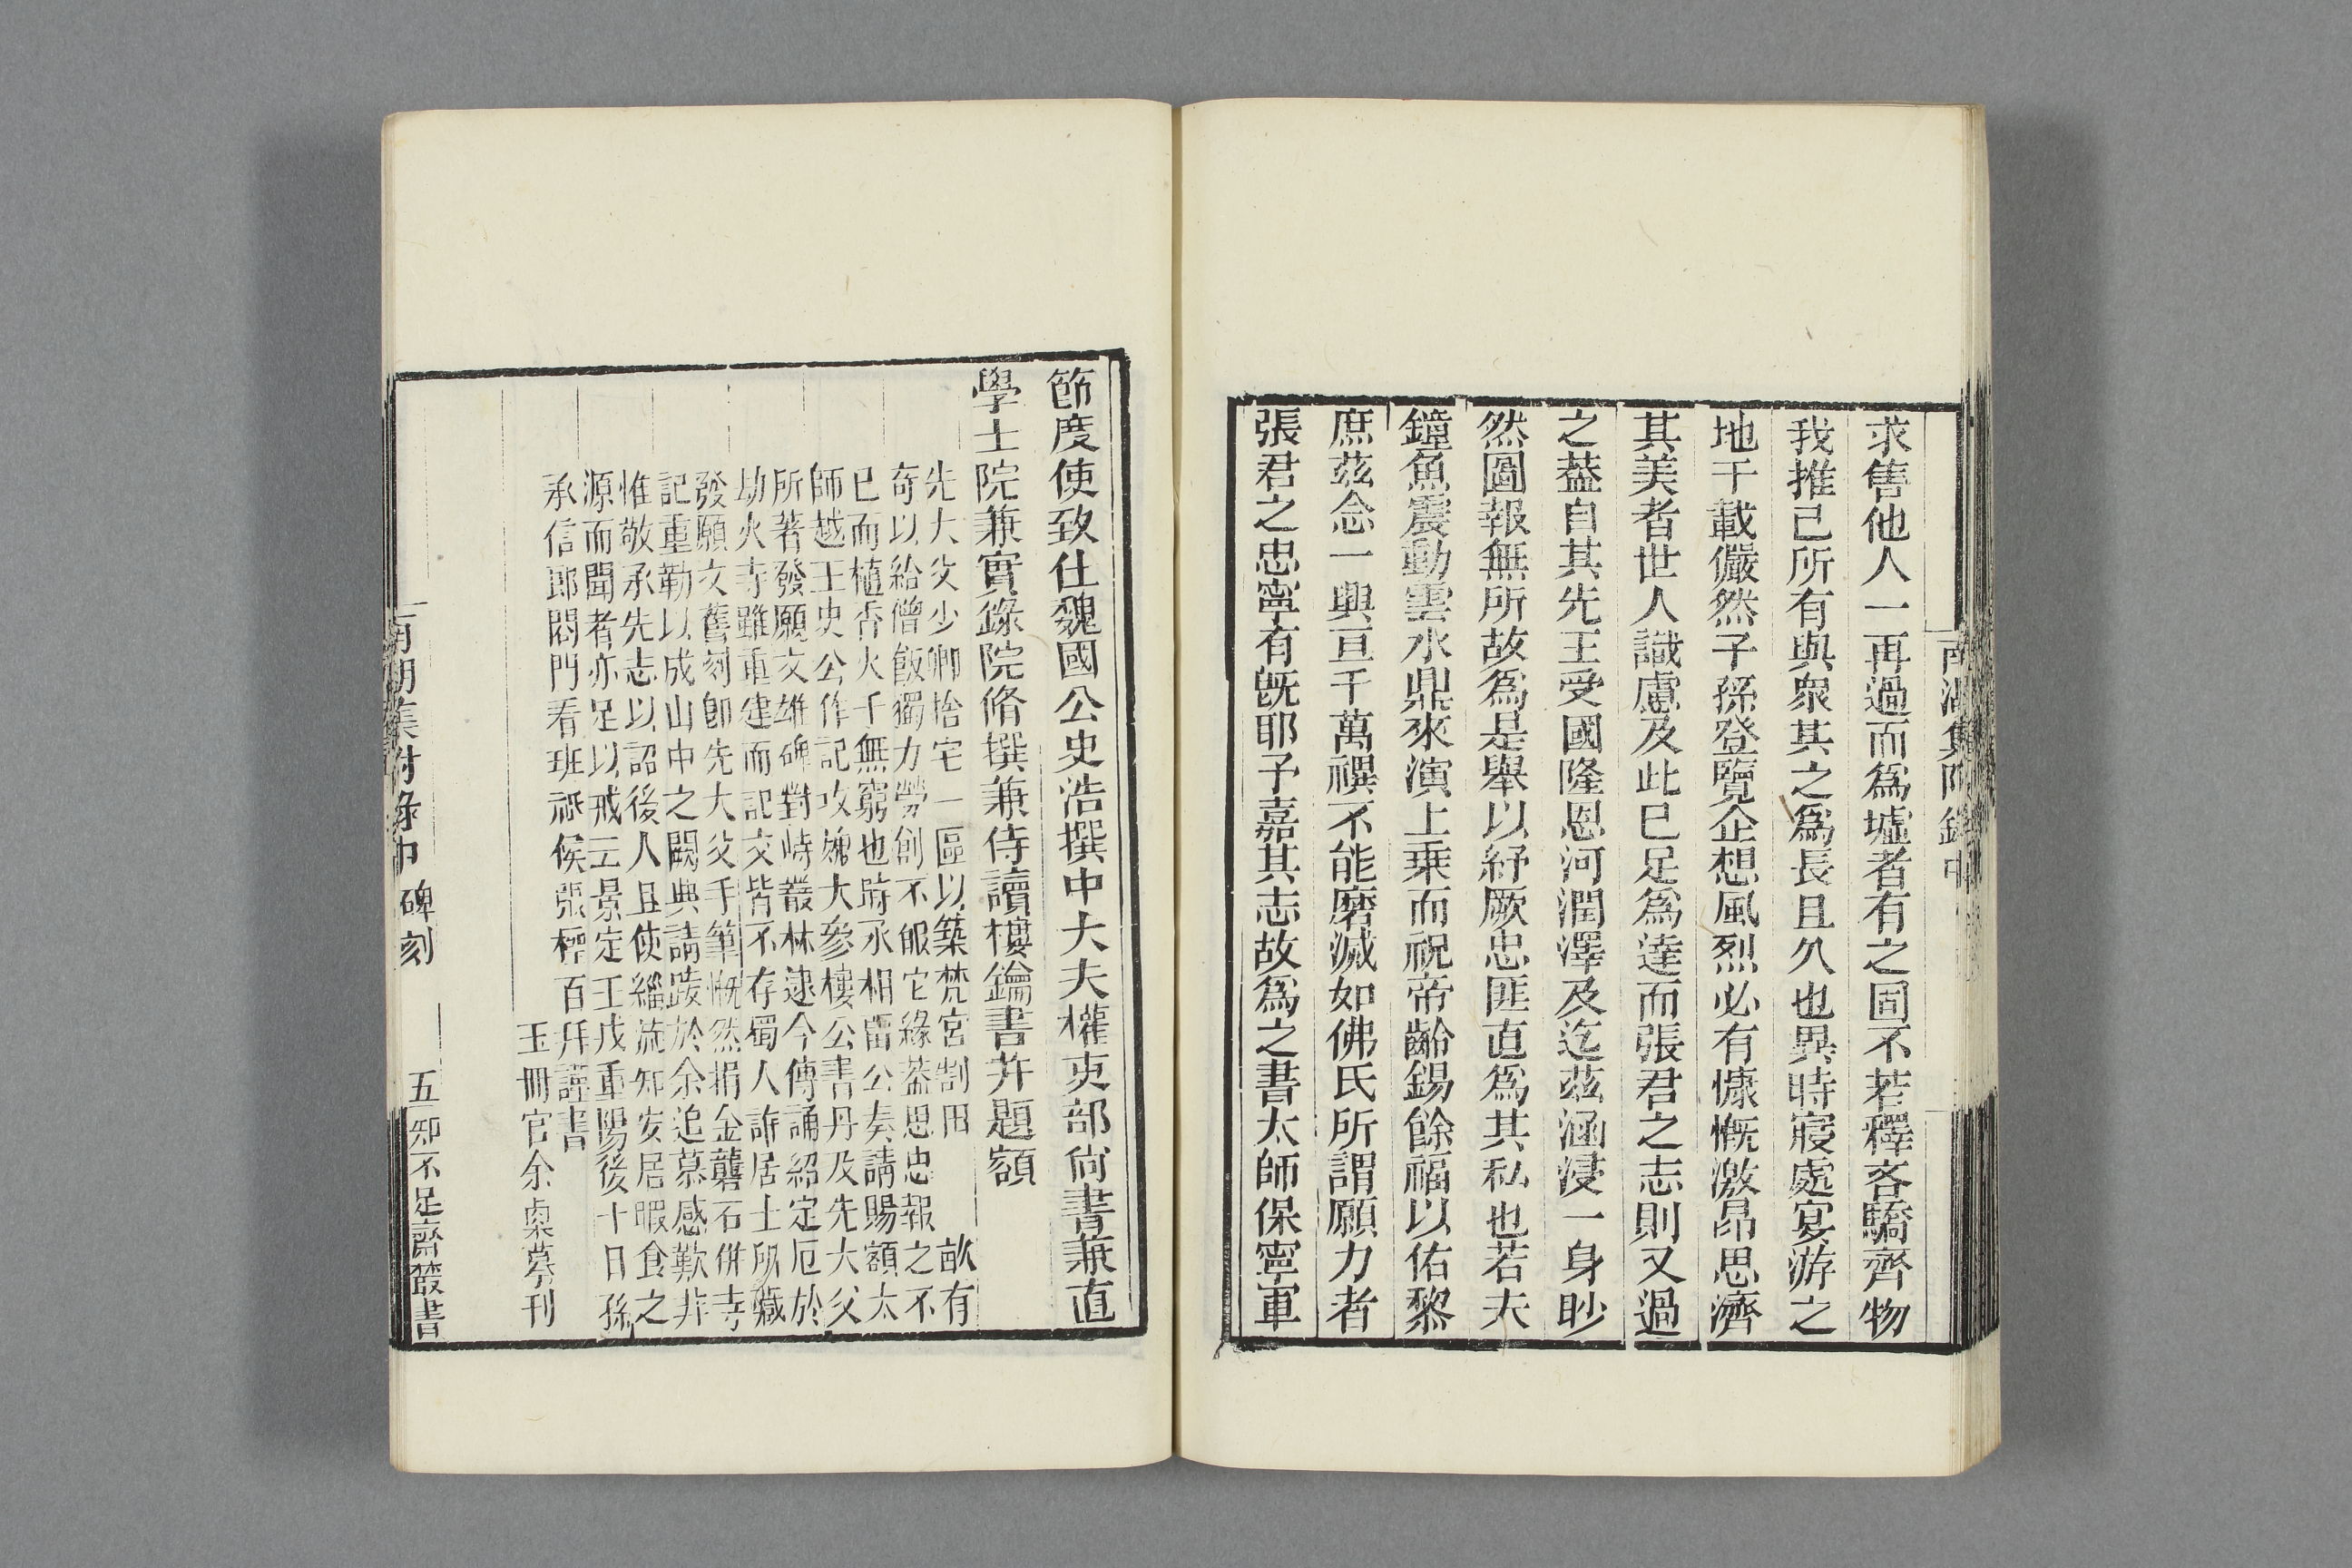 求售他人一再過而爲墟者有之固不若釋吝驕齊物
我推己所有與衆其之爲長且久也異時寢處宴游之
地千載儼然子孫登覽企想風烈必有慷慨激昂思濟
其美者世人識慮及此已足爲達而張君之志則又過
之葢自其先王受國隆恩河潤澤及迄茲涵浸一身眇
然圖報無所故爲是舉以紓厥忠匪直爲其私也若夫
鐘魚震動雲水鼎來演上乗而祝帝齡錫餘福以佑黎
庶茲念一興亘千萬禩不能磨滅如佛氏所謂願力者
張君之忠寧有旣耶予嘉其志故爲之書太師保寧軍
節度使致仕魏國公史浩撰中大夫權吏部尚書兼直
學士院兼實錄院脩撰兼侍讀樓鑰書幷題額
先大父少卿捨宅一區以築梵宮割田 畝有
奇以給僧飯獨力勞創不服它緣葢思忠報之不
已而植香火千無窮也時丞相留公奏請賜額太
師越王史公作記攻媿大參樓公書丹及先大父
所著發願文雄碑對峙叢林逮今傳誦紹定厄於
劫火寺雖重建而記文皆不存蜀人許居士所藏
發願文舊刻卽先大父手筆慨然捐金礱石倂寺
記重勒以成山中之闕典請跋於余追慕感歎非
惟敬承先志以詔後人且使緇流知安居暇食之
源而聞者亦足以戒云景定壬戌重陽後十日孫
承信郎閤門看班祗候張檉百拜謹書
玉冊官余㮚摹刊
南湖集附錄中 碑刻 五 知不足齋叢書